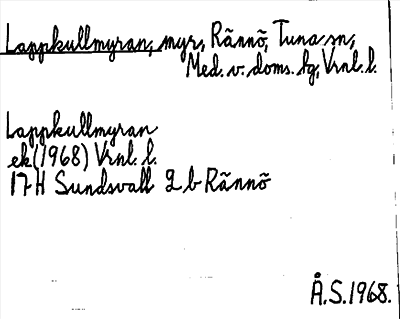 Lappkullmyran, myr, Rännö, Tuna sn,
Med. v. doms. hg, Vrnl. l.
Lappkullmyran
ek (1968) Vrnl. l.
17H Sundsvall 2 b Rännö
Å.S. 1968.